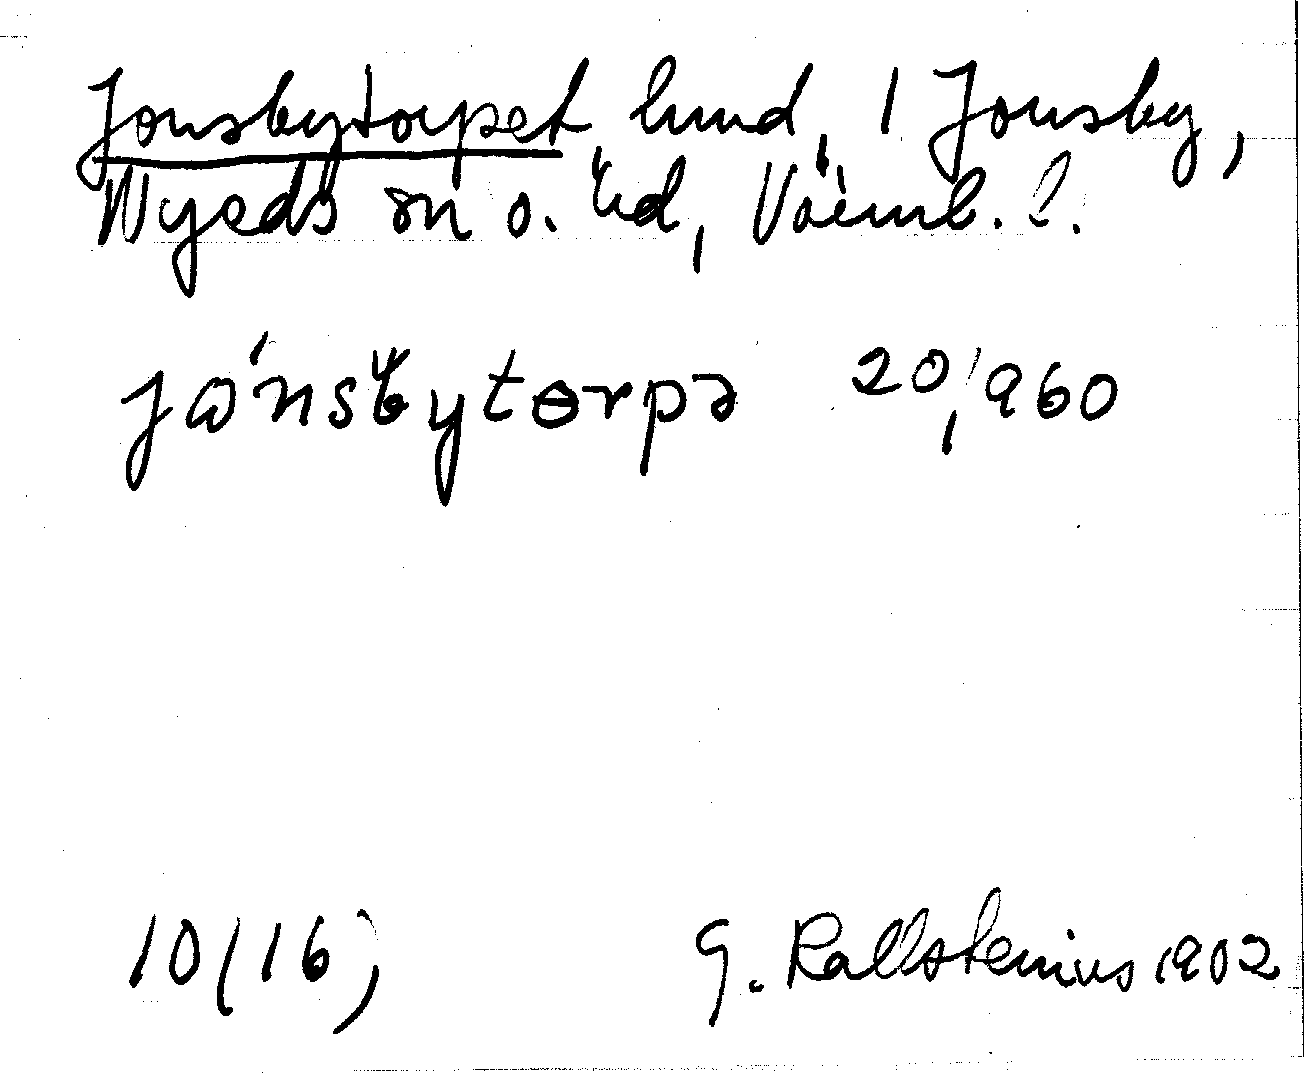 Jonsbytorpet, hmd, 1 Jonsby,
Wyeds sn o. hd, Värml. l.
jɷ́nsbytɵrpə 20,960
10(16)
G. Kallstenius 1902